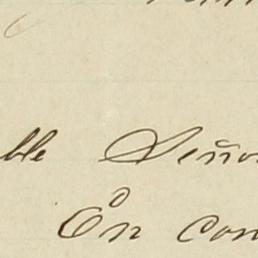 ble Señor
En con